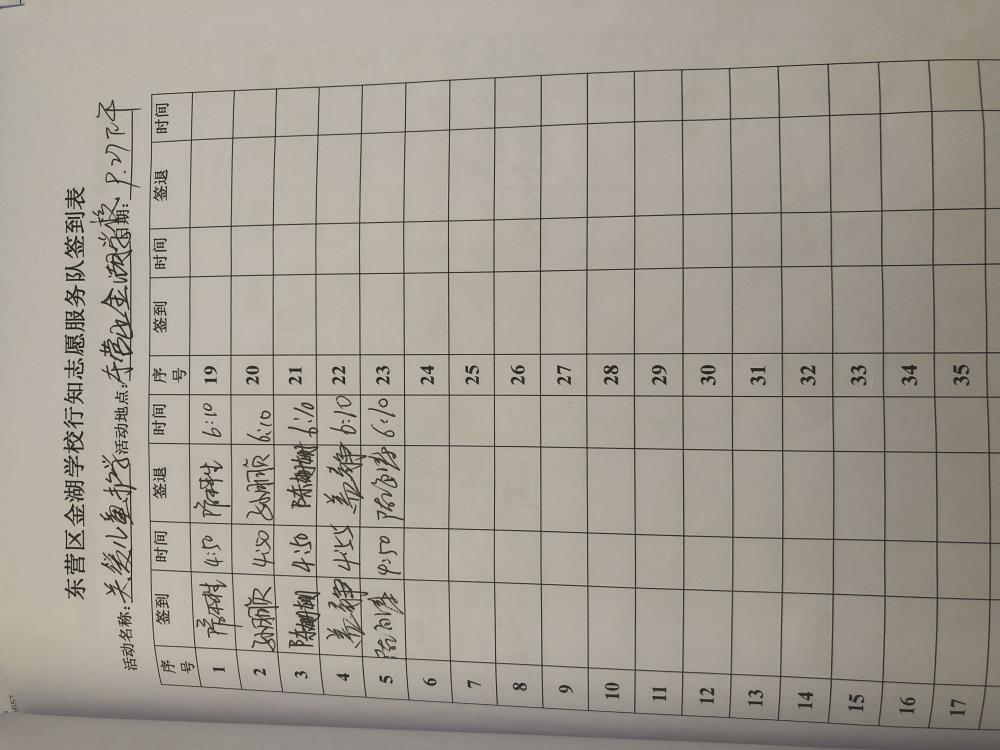 东营区金湖学校行知志愿服务队签到表
活动名称：关爱儿童护学 活动地点：东营区金湖学校 日期：9.27下午
序号 签到 时间 签退 时间 序号 签到 时间 签退 时间
1 4:50 6:10 19
2 孙丽丽 4:50 孙丽丽 6:10 20
3 陈珊珊 4:50 陈珊珊 6:10 21
4 姜静 4:55 姜静 6:10 22
5 4:50 6:10 23
6 24
7 25
8 26
9 27
10 28
11 29
12 30
13 31
14 32
15 33
16 34
17 35